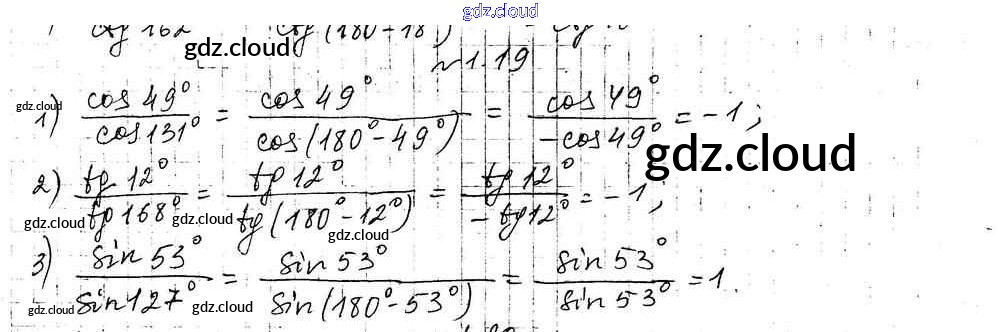 gdz.cloud
ctg 162 ctg (180-18)
gdz.cloud
gdz.cloud
№ 1.19
gdz.cloud
1) cos 49° / cos 131° = cos 49° / cos (180° - 49°) = cos 49° / -cos 49° = -1;
gdz.cloud
2) tg 12° / tg 168° = tg 12° / tg (180° - 12°) = tg 12° / -tg 12° = -1;
gdz.cloud gdz.cloud gdz.cloud
3) sin 53° / sin 127° = sin 53° / sin (180° - 53°) = sin 53° / sin 53° = 1.
gdz.cloud gdz.cloud gdz.cloud